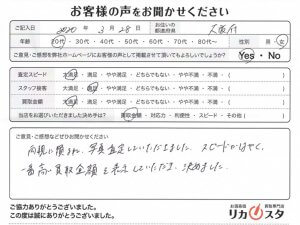 お客様の声をお聞かせください
ご記入日 2020年 3月 28日 お住いの都道府県 大阪府
年齢 20代・30代・40代・50代・60代・70代・80代～ 性別 男・女
ご意見・ご感想を弊社ホームページにお客様の声として掲載させて頂いてもよろしいでしょうか? Yes・No
査定スピード 大満足・満足・やや満足・どちらでもない・やや不満・不満 ( )
スタッフ接客 大満足・満足・やや満足・どちらでもない・やや不満・不満 ( )
買取金額 大満足・満足・やや満足・どちらでもない・やや不満・不満 ( )
当店をお選びいただきました決め手は? 買取金額・対応力・利便性・スピード・その他( )
ご意見・ご感想などぜひお聞かせください
写真査定していただきました。スピードがはやく、
一番高い買取金額を表示していただき、決めました。
ご協力ありがとうございました。
この度は誠にありがとうございました。
お酒高価買取専門店
リカスタ